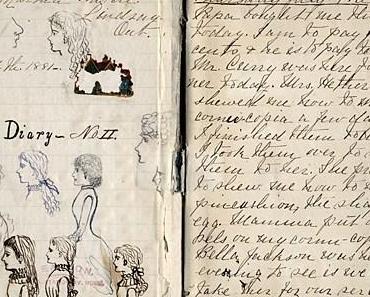 Lindsay
Ont.
th. 1881.
Diary - No II.
Papa bought me thi
today. I am to pay
cents, & he is to pay t
Mr. Curry was here to
her today. Mrs. Hether
showed me how to m
cornucopia a few d
I finished them toda
I took them over to
them to her. She pr
to show me how to m
pincushion, the sha
egg. Mamma put
sels on my cornu-cop
Bella Jackson was he
evening to see if we c
take tea for our ser